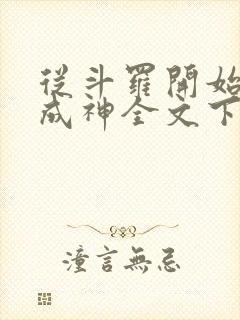 從斗羅開始
成神全文下
潼言無忌